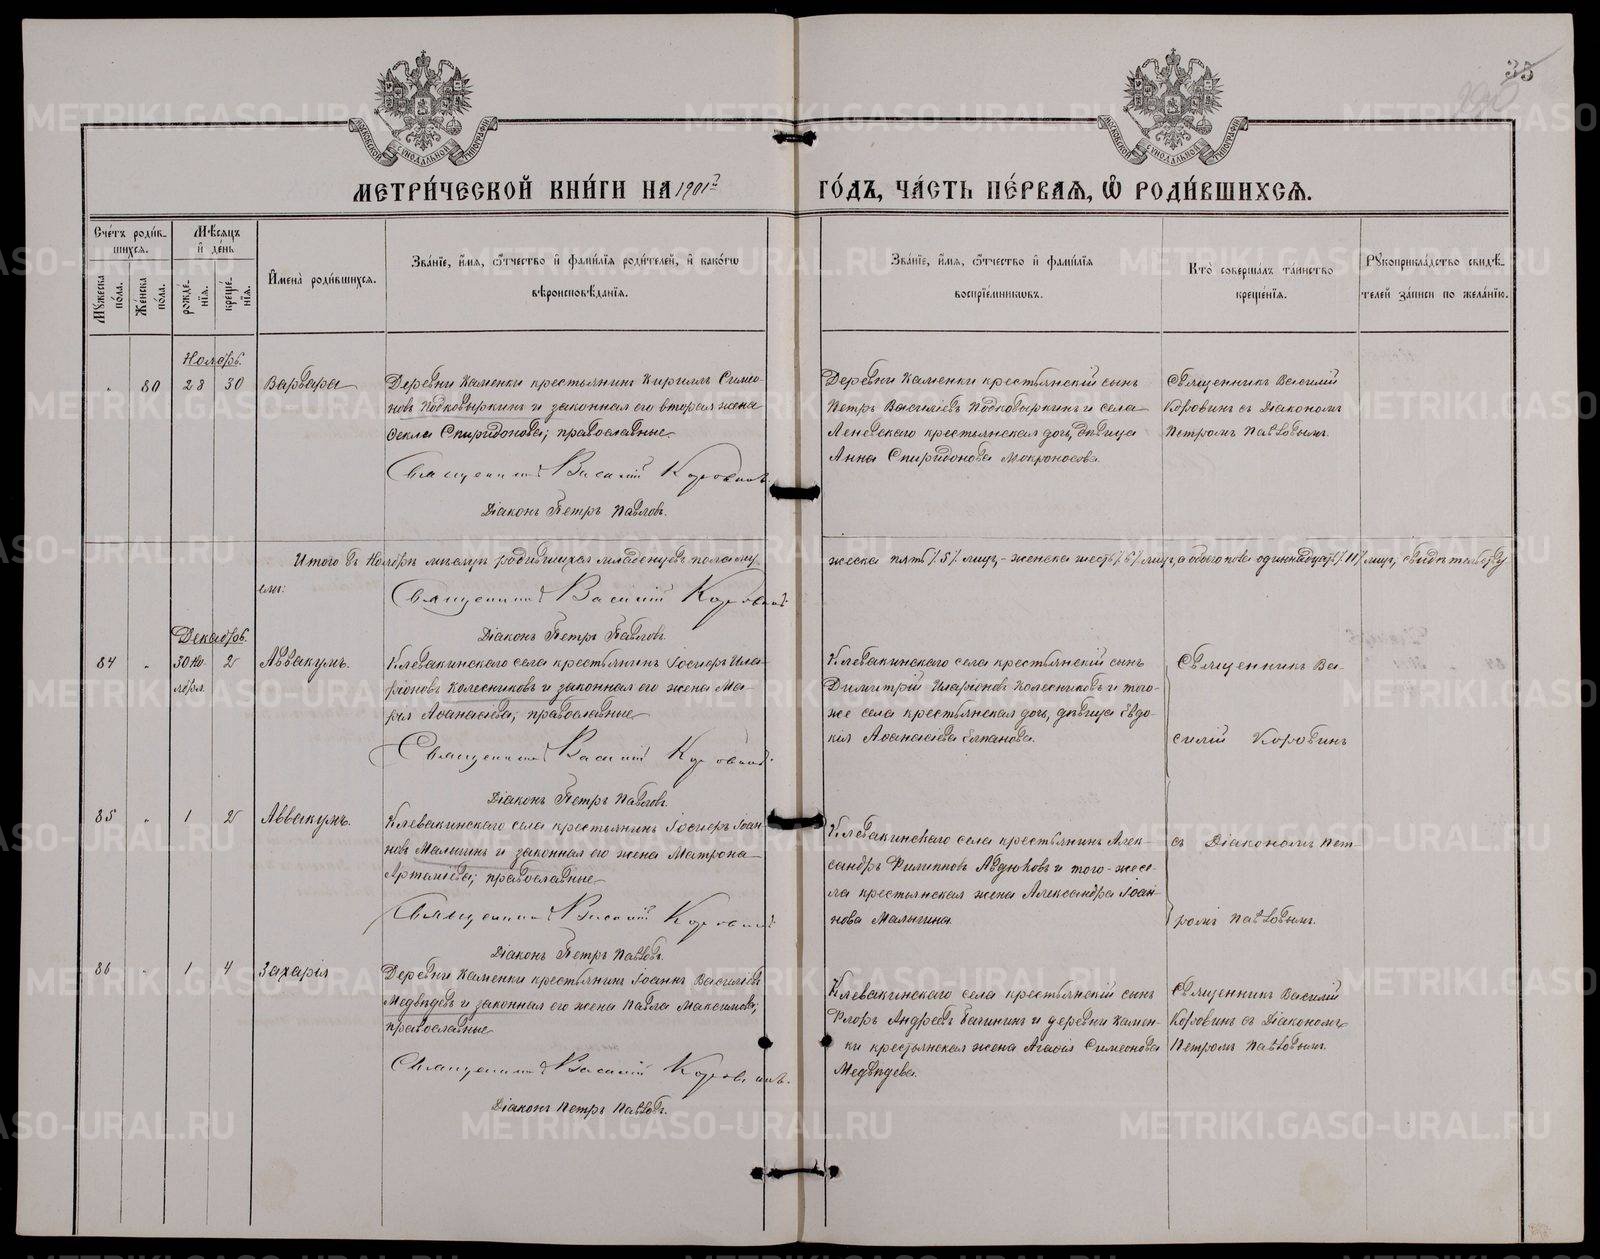 35
МЕТРИ́ЧЕСКОЙ КНИ́ГИ НА 1901 й
ГО́ДЪ, ЧА́СТЬ ПЕ́РВАѦ, Ѽ РОДИ́ВШИХСѦ.
Сче́тъ роди́в-
шихся.
Мѣ́сяцъ
и҆ де́нь
Му́жеска по́ла.
Же́нска по́ла.
рожде́-
нїя.
креще́-
нїя.
И҆мена̀ роди́вшихся.
Зва́нїе, и҆́мя, ѻ҆́тчество и҆ фами́лїя роди́телей, и҆ како́гѡ
вѣроисповѣ́данїя.
Зва́нїе, и҆́мя, ѻ҆́тчество и҆ фами́лїя
воспрїе́мниковъ.
Кто̀ соверша́лъ та́инство
креще́нїя.
Рꙋкоприкла́дство свидѣ́-
телей за́писи по жела́нїю.
Ноябрь.
80 28 30 Варвара
Деревни Каменки крестьянинъ Кириллъ Симео-
новъ Подковыркинъ и законная его вторая жена
Ѳекла Спиридонова; православные
Священникъ Василій Коровинъ.
Діаконъ Петръ Павловъ.
Деревни Каменки крестьянскій сынъ
Петръ Василіевъ Подковыркинъ и села
Леневскаго крестьянская дочь, дѣвица
Анна Спиридонова Мокроносова.
Священникъ Василій
Коровинъ съ Діакономъ
Петромъ Павловымъ.
Итого въ Ноябрѣ мѣсяцѣ родившихся младенцевъ пола му-
жеска пять /5/ лицъ, - женска шесть /6/ лицъ, а обоего пола одиннадцать /11/ лицъ; свидѣтельству-
емъ:
Священникъ Василій Коровинъ.
Діаконъ Петръ Павловъ.
Декабрь.
84 30 Но-
ября. 2 Аввакумъ.
Клевакинскаго села крестьянинъ Іосифъ Ила-
ріоновъ Колесниковъ и законная его жена Ма-
рія Аѳанасіева; православные
Священникъ Василій Коровинъ.
Діаконъ Петръ Павловъ.
Клевакинскаго села крестьянскій сынъ
Димитрій Иларіоновъ Колесниковъ и того-
же села крестьянская дочь, дѣвица Евдо-
кія Аѳанасіева Елпанова.
Священникъ Ва-
силій Коровинъ
85 1 2 Аввакумъ.
Клевакинскаго села крестьянинъ Іосифъ Іоан-
новъ Малыгинъ и законная его жена Матрона
Артеміева; православные
Священникъ Василій Коровинъ
Діаконъ Петръ Павловъ.
Клевакинскаго села крестьянинъ Алек-
сандръ Филипповъ Авдюковъ и того-же се-
ла крестьянская жена Александра Іоан-
нова Малыгина.
съ Діакономъ Пет-
ромъ Павловымъ.
86 1 4 Захарія
Деревни Каменки крестьянинъ Іоаннъ Василіевъ
Медвѣдевъ и законная его жена Павла Максимова;
православные
Священникъ Василій Коровинъ.
Діаконъ Петръ Павловъ.
Клевакинскаго села крестьянскій сынъ
Флоръ Андреевъ Бачининъ и деревни Камен-
ки крестьянская жена Агаѳія Симеонова
Медвѣдева.
Священникъ Василій
Коровинъ съ Діакономъ
Петромъ Павловымъ.
METRIKI.GASO-URAL.RU